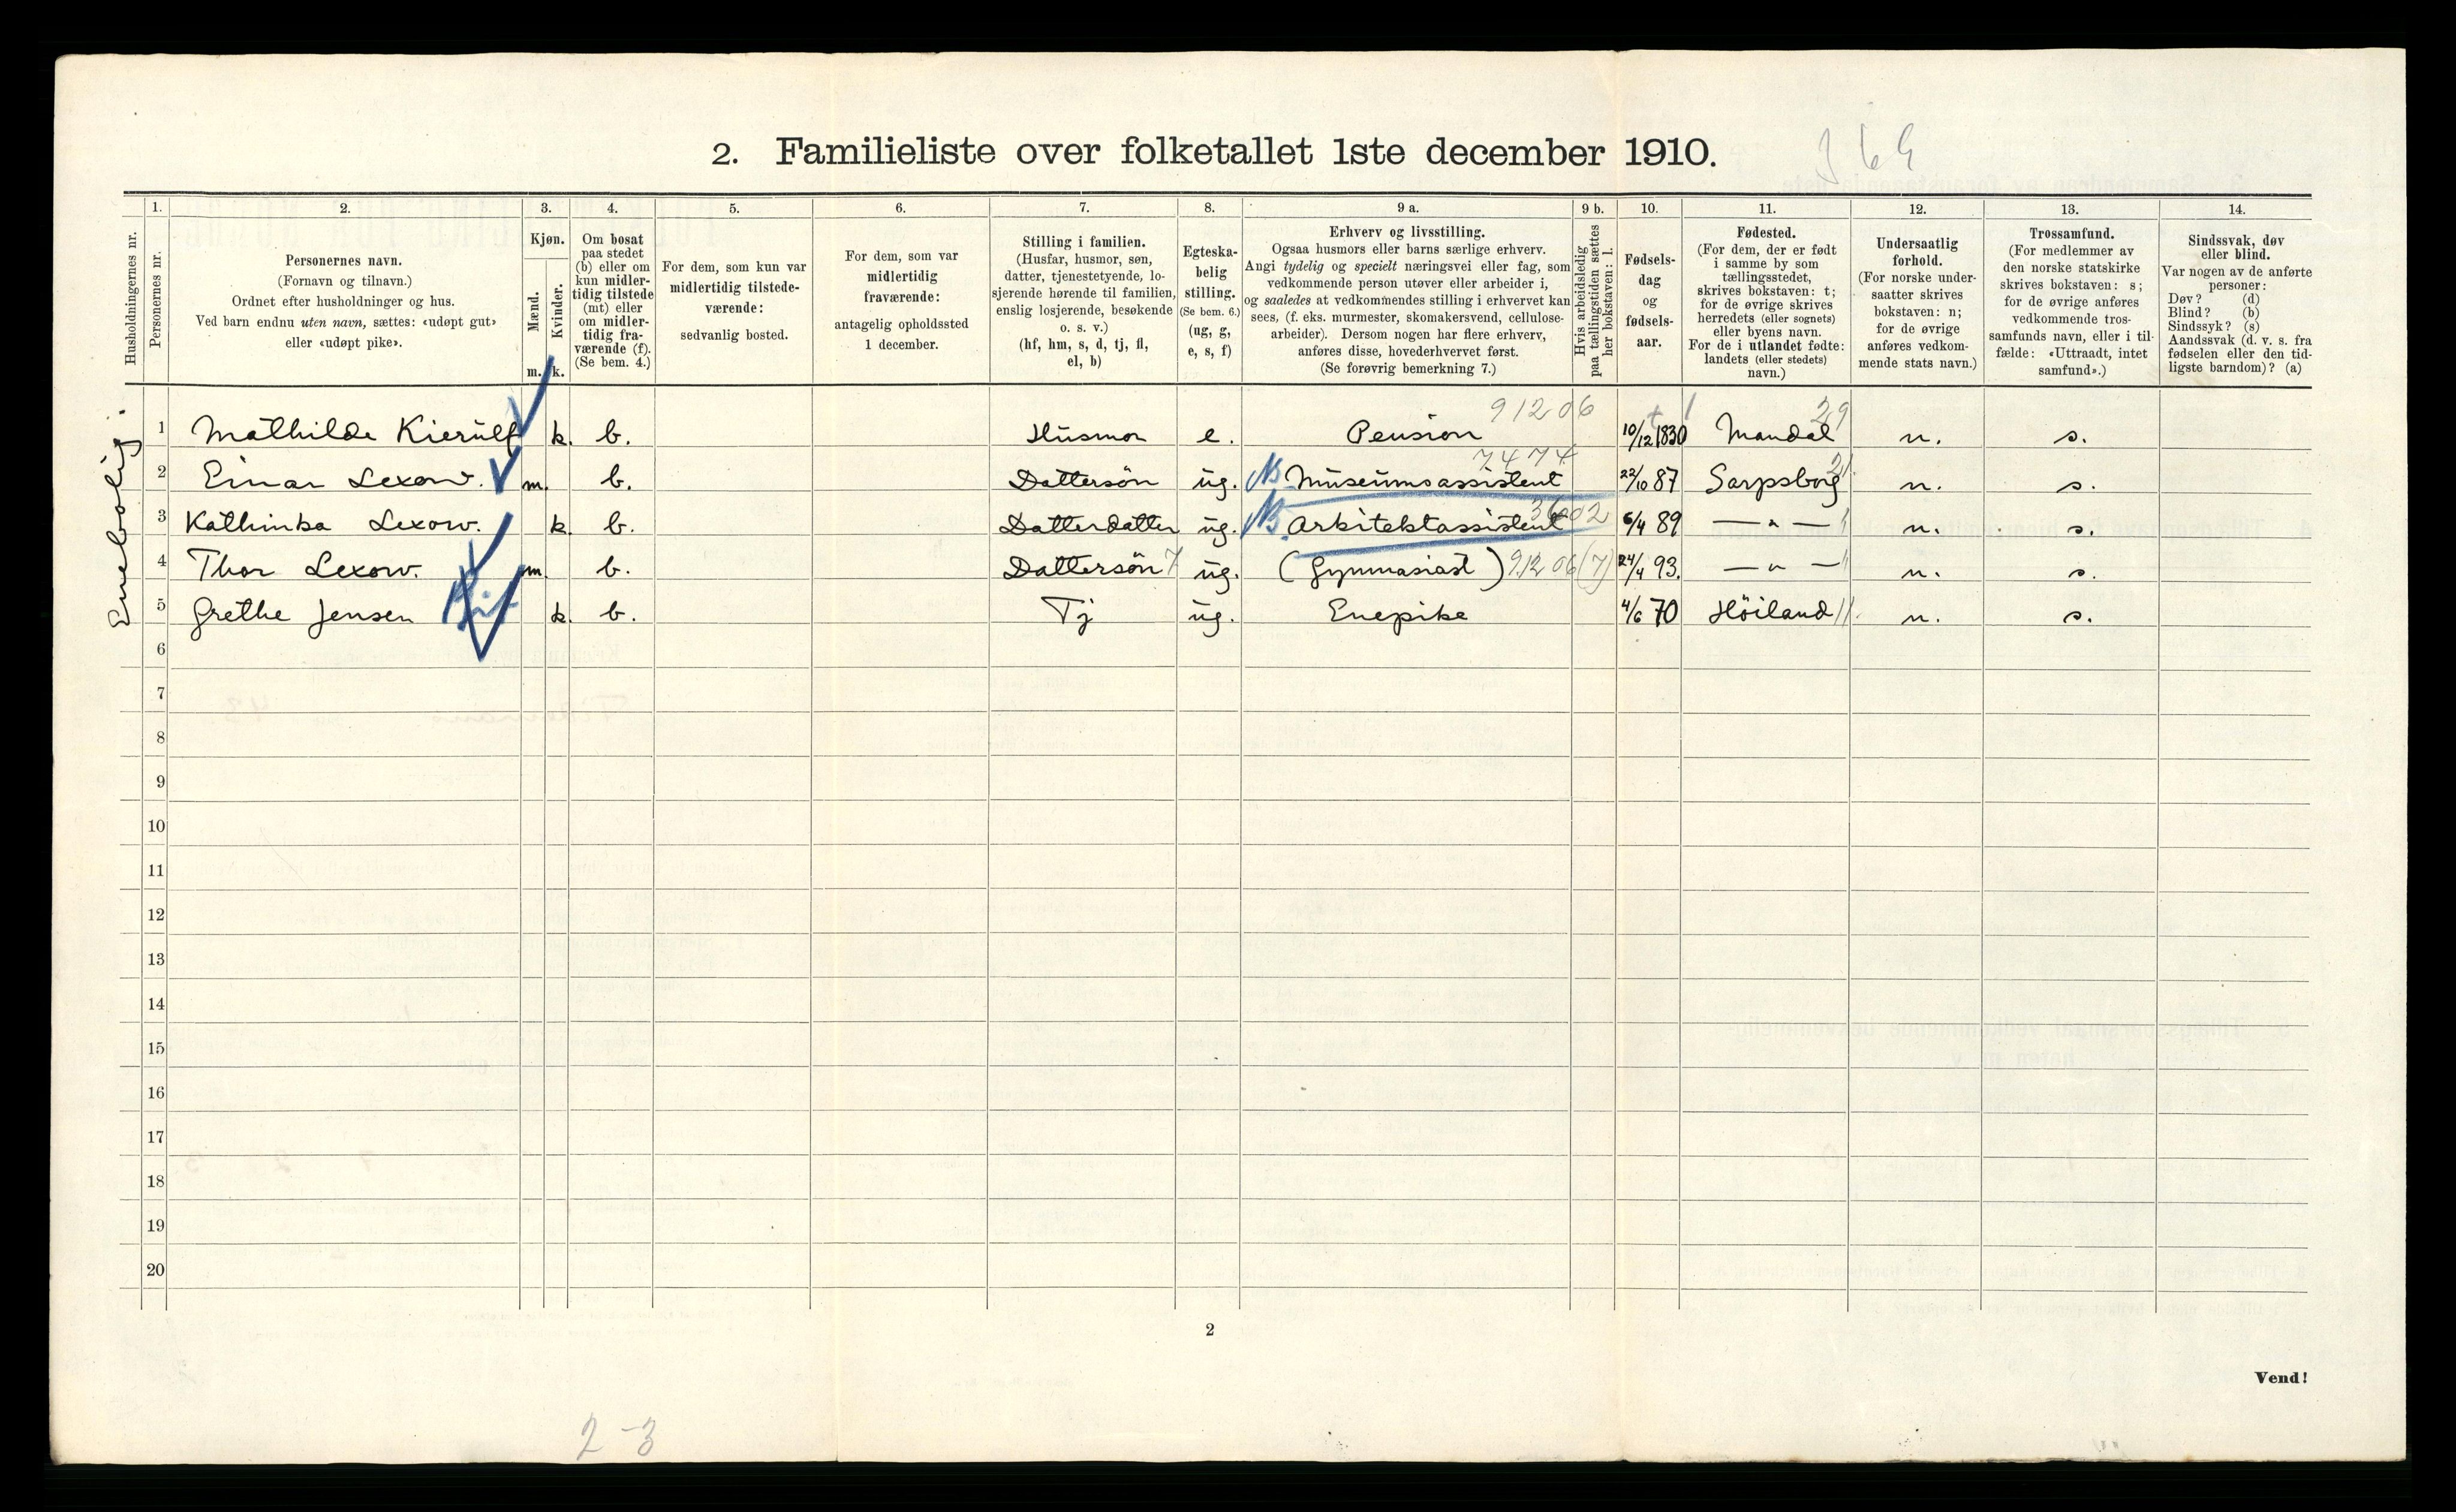 2. Familieliste over folketallet 1ste december 1910.
Husholdningernes nr.
1.
Personernes nr.
2.
Personernes navn.
(Fornavn og tilnavn.)
Ordnet efter husholdninger og hus.
Ved barn endnu uten navn, sættes: «udøpt gut»
eller «udøpt pike».
3.
Kjøn.
Mænd.
Kvinder.
m. k.
4.
Om bosat
paa stedet
(b) eller om
kun midler-
tidig tilstede
(mt) eller
om midler-
tidig fra-
værende (f).
(Se bem. 4.)
5.
For dem, som kun var
midlertidig tilstede-
værende:
sedvanlig bosted.
6.
For dem, som var
midlertidig
fraværende:
antagelig opholdssted
1 december.
7.
Stilling i familien.
(Husfar, husmor, søn,
datter, tjenestetyende, lo-
sjerende hørende til familien,
enslig losjerende, besøkende
o. s. v.)
(hf, hm, s, d, tj, fl,
el, b)
8.
Egteska-
belig
stilling.
(Se bem. 6.)
(ug, g,
e, s, f)
9 a.
Erhverv og livsstilling.
Ogsaa husmors eller barns særlige erhverv.
Angi tydelig og specielt næringsvei eller fag, som
vedkommende person utøver eller arbeider i,
og saaledes at vedkommendes stilling i erhvervet kan
sees, (f. eks. murmester, skomakersvend, cellulose-
arbeider). Dersom nogen har flere erhverv,
anføres disse, hovederhvervet først.
(Se forøvrig bemerkning 7.)
9 b.
Hvis arbeidsledig
paa tællingstiden sættes
her bokstaven: l.
10.
Fødsels-
dag
og
fødsels-
aar.
11.
Fødested.
(For dem, der er født
i samme by som
tællingsstedet,
skrives bokstaven: t;
for de øvrige skrives
herredets (eller sognets)
eller byens navn.
For de i utlandet fødte:
landets (eller stedets)
navn.)
12.
Undersaatlig
forhold.
(For norske under-
saatter skrives
bokstaven: n;
for de øvrige
anføres vedkom-
mende stats navn.)
13.
Trossamfund.
(For medlemmer av
den norske statskirke
skrives bokstaven: s;
for de øvrige anføres
vedkommende tros-
samfunds navn, eller i til-
fælde: «Uttraadt, intet
samfund».)
14.
Sindssvak, døv
eller blind.
Var nogen av de anførte
personer:
Døv? (d)
Blind? (b)
Sindssyk? (s)
Aandssvak (d. v. s. fra
fødselen eller den tid-
ligste barndom)? (a)
Enebolig.
91206 29
1 Mathilde Kierulf k. b. Husmor e. Pension 10/12 1830 Mandal n. s.
7474
2 Einar Lexow. m. b. Dattersön ug. Museumsassistent 22/10 87 Sarpsborg n. s.
36002
3 Kathinka Lexow. k. b. Datterdatter ug. Arkitektassistent 6/4 89 — " — n. s.
4 Thor Lexow. m. b. Dattersön 7 ug. (Gymnasiast) 91206 (7) 24/4 93. — " — n. s.
5 Grethe Jensen k. b. Tj ug. Enepike 4/6 70 Höiland n. s.
6
7
8
9
10
11
12
13
14
15
16
17
18
19
20
2
Vend!
2-3